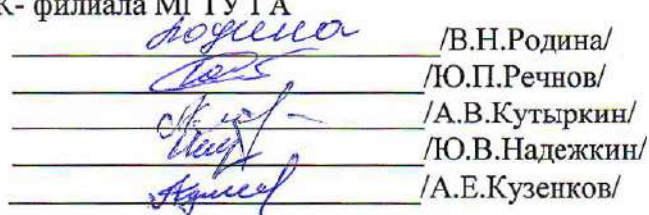 К- филиала МГТУ ГА
Родина /В.Н.Родина/
/Ю.П.Речнов/
/А.В.Кутыркин/
/Ю.В.Надежкин/
/А.Е.Кузенков/